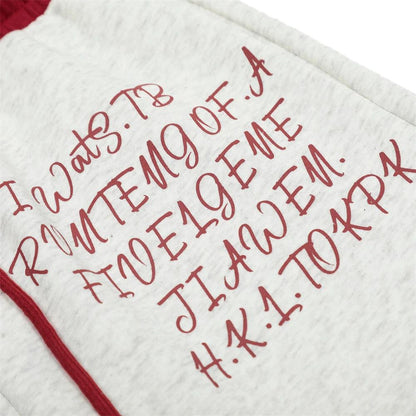 I WatS.TB
RUNTENG OF.A
FIVE1GENE
JIAWEN.
H.K.1.TOKPK